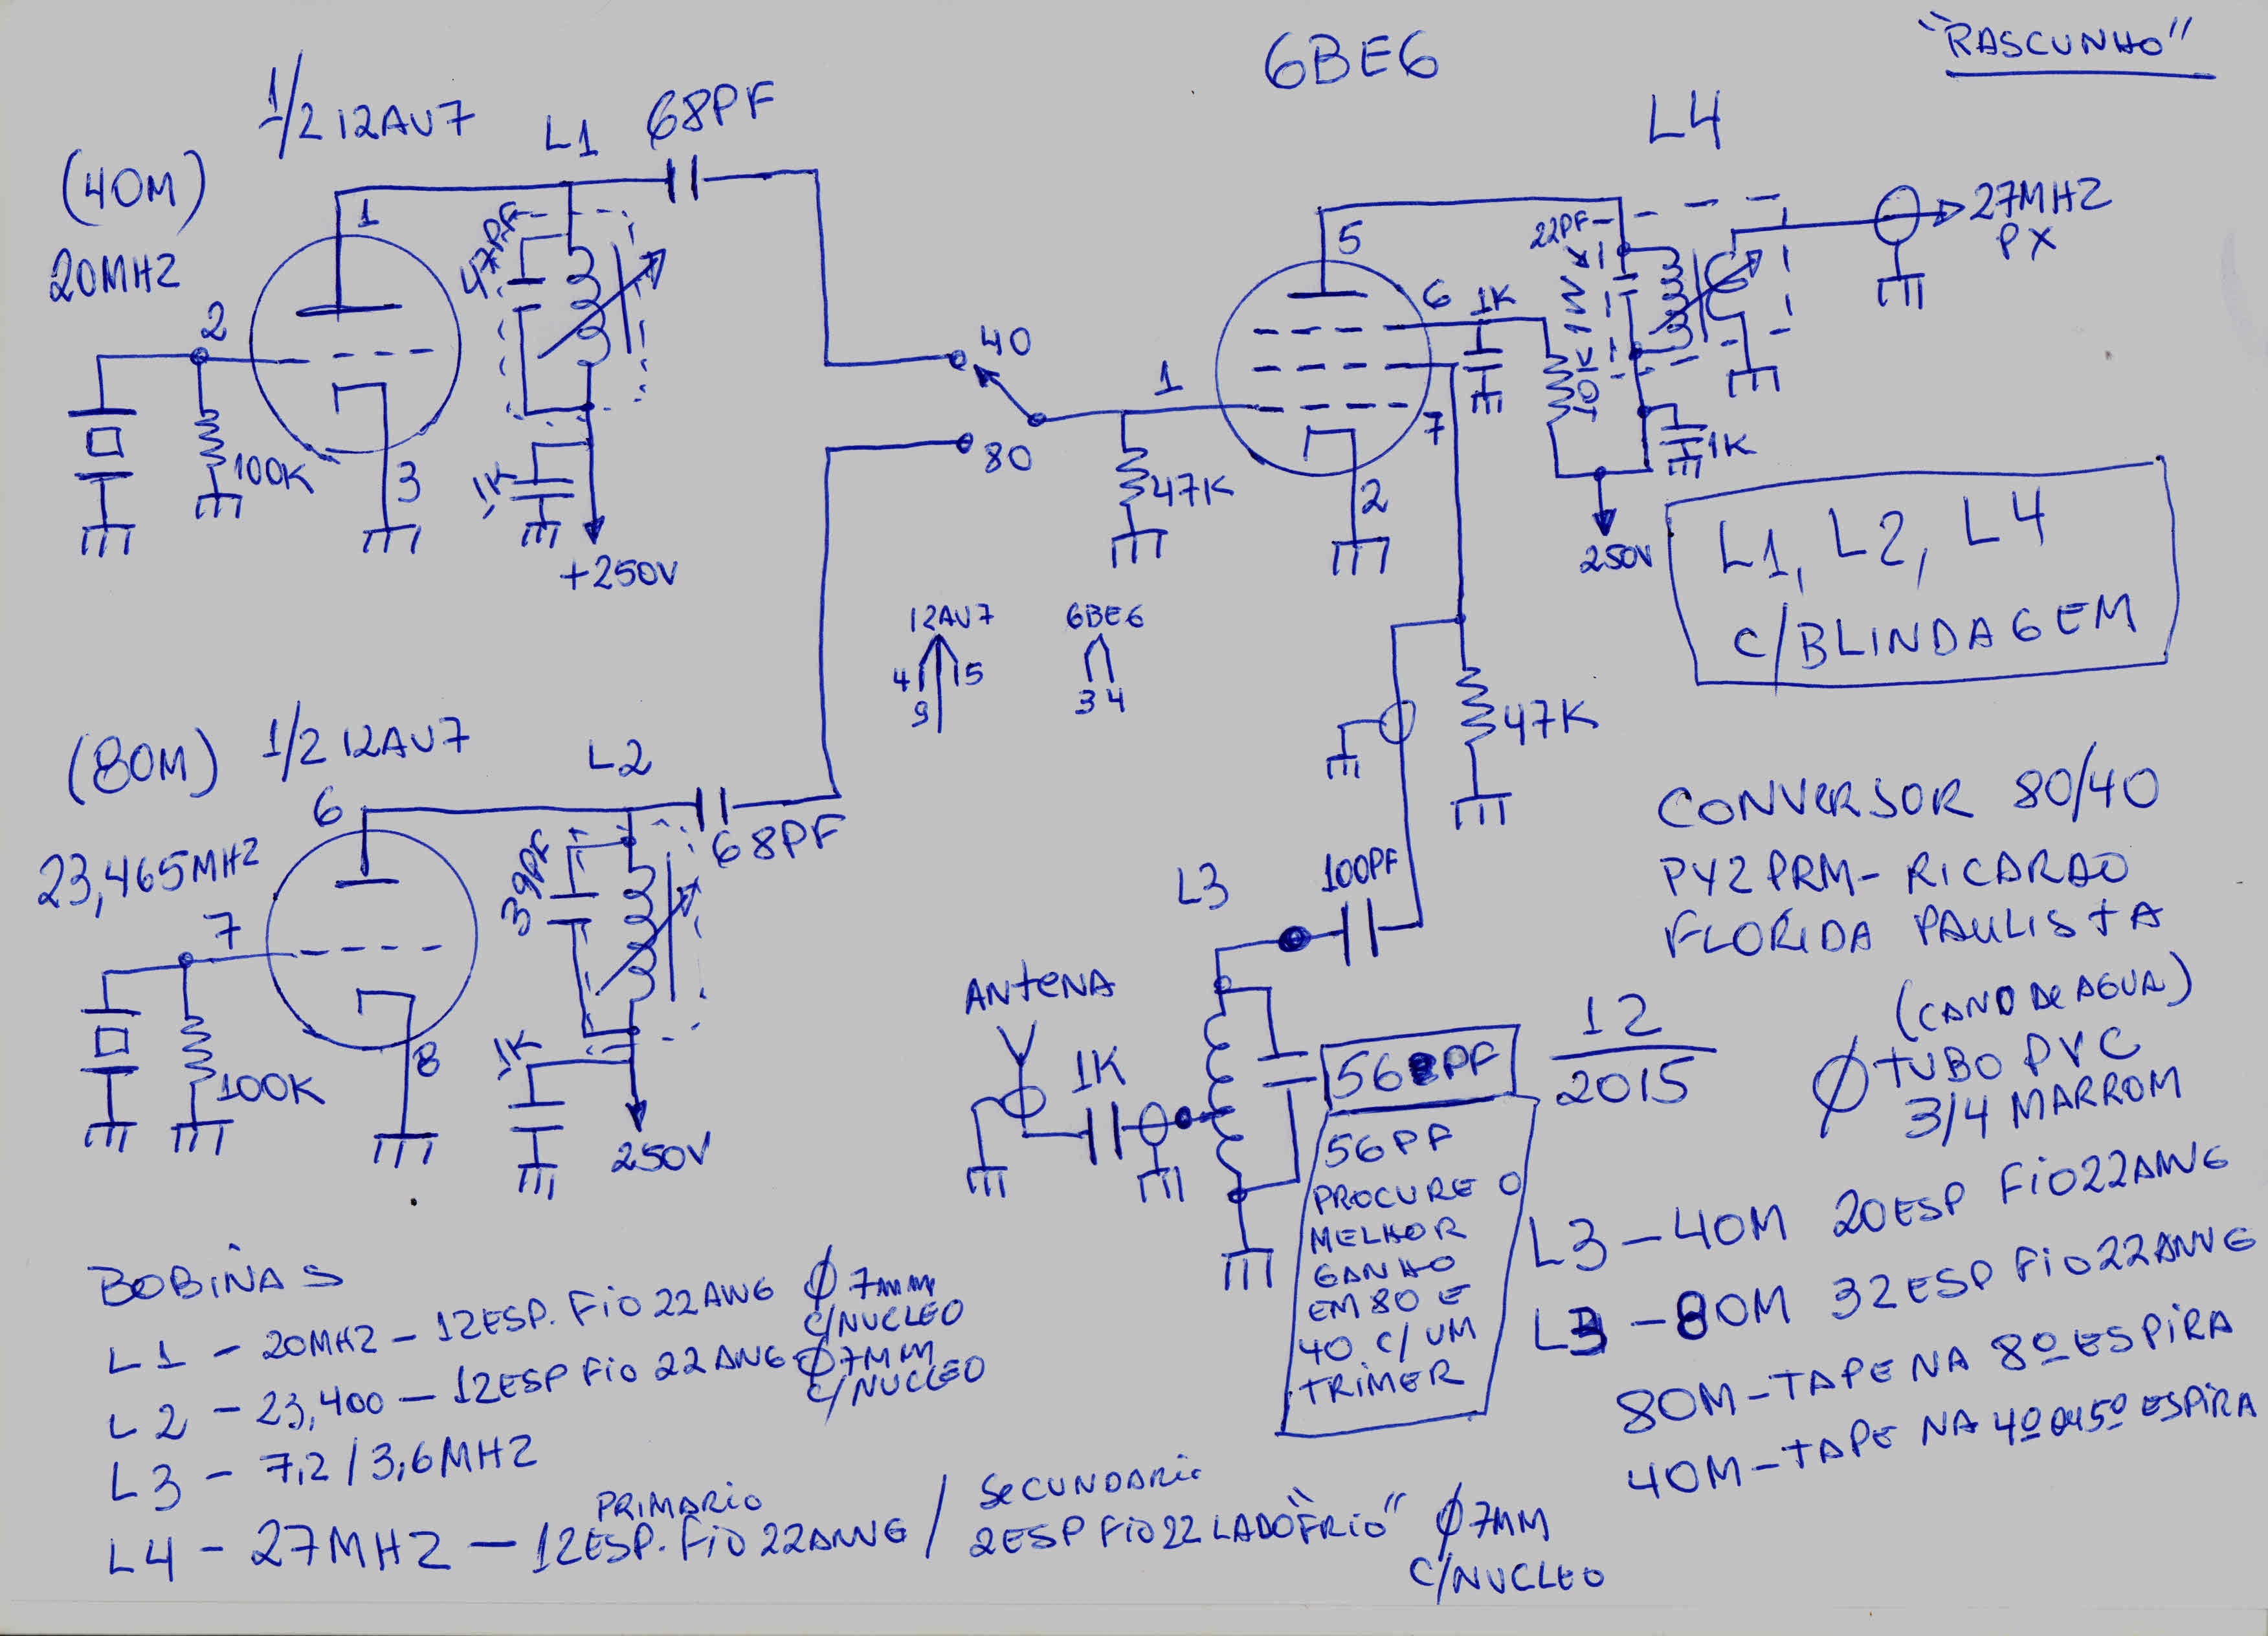 "RASCUNHO"
6BE6
1/2 12AU7
L1
68PF
L4
(40M)
20MHZ
1
2
3
100K
47PF
1K
+250V
40
80
1
47K
5
6
1K
7
2
22PF
10K
1K
250V
27MHZ
PX
L1, L2, L4
C/BLINDAGEM
12AU7
4 5
9
6BE6
3 4
(80M)
1/2 12AU7
L2
6
23,465MHZ
7
8
100K
39PF
1K
250V
68PF
47K
100PF
L3
ANTENA
1K
56PF
56PF
PROCURE O
MELHOR
GANHO
EM 80 E
40 C/ UM
TRIMER
CONVERSOR 80/40
PY2PRM - RICARDO
FLORIDA PAULISTA
12
2015
(CANO DE AGUA)
Ø TUBO PVC
3/4 MARROM
L3 - 40M 20ESP FIO22AWG
L3 - 80M 32ESP FIO22AWG
80M - TAPE NA 8º ESPIRA
40M - TAPE NA 4º OU 5º ESPIRA
BOBINAS
L1 - 20MHZ - 12ESP. FIO 22AWG Ø 7mm
C/NUCLEO
L2 - 23,400 - 12ESP FIO 22AWG Ø7MM
C/NUCLEO
L3 - 7,2 / 3,6MHZ
L4 - 27MHZ - PRIMARIO 12ESP. FIO 22AWG / SECUNDARIO 2ESP FIO22 LADO "FRIO" Ø 7MM
C/NUCLEO